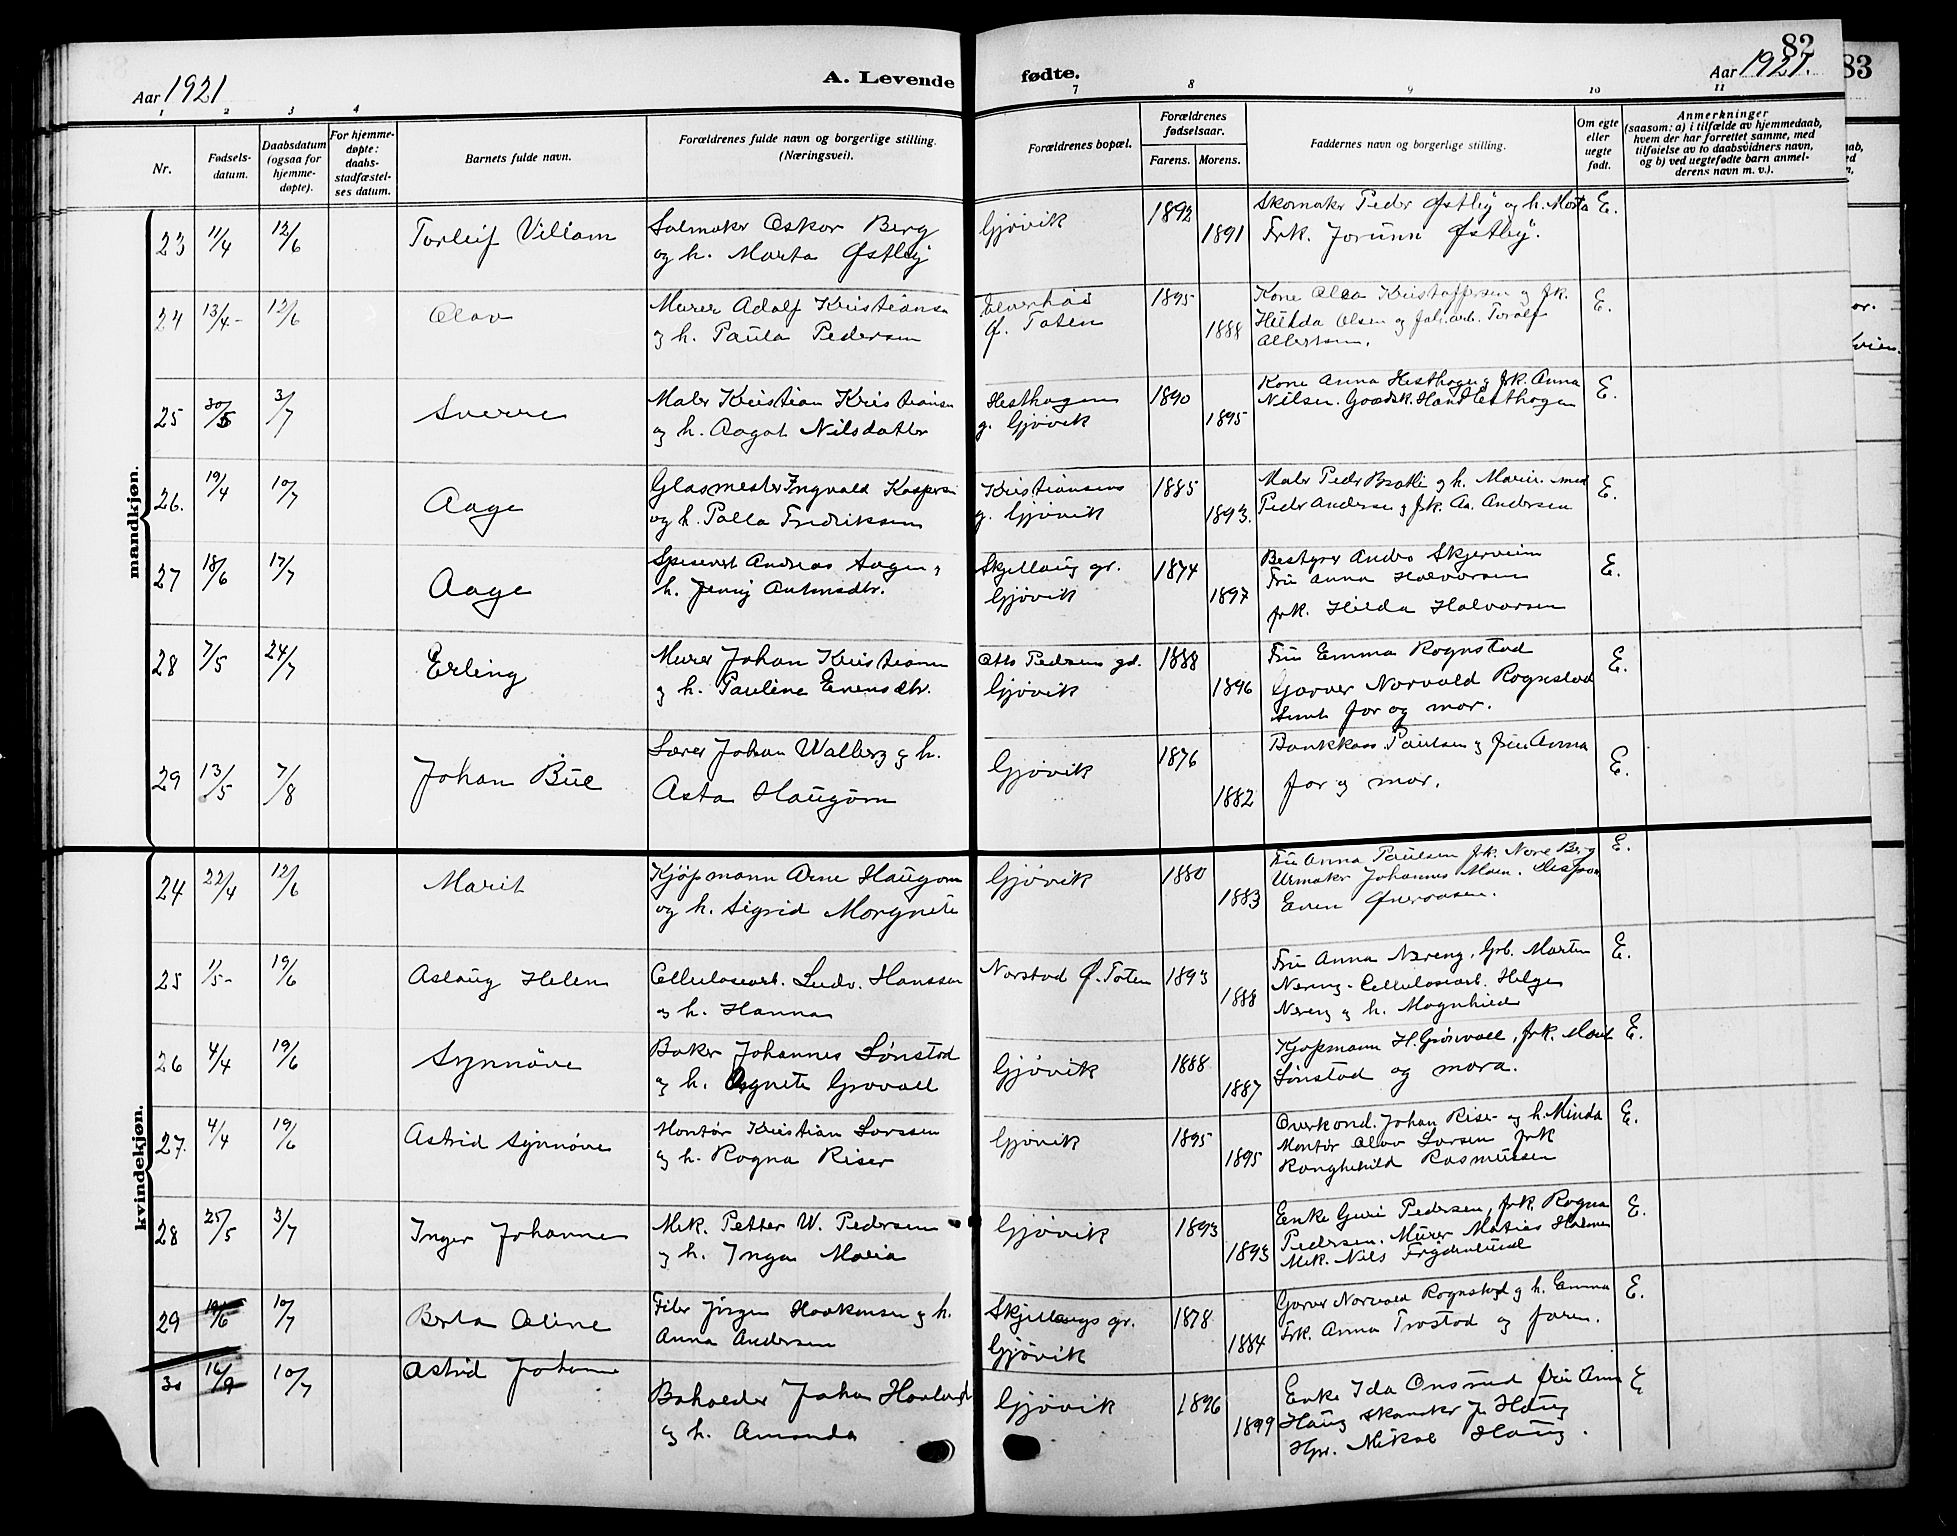 82
83
Aar 1921
A. Levende
fødte.
Aar 1921.
1 2 3 4
7 8 9 10 11
Nr.
Fødsels-
datum.
Daabsdatum
(ogsaa for
hjemme-
døpte).
For hjemme-
døpte:
daabs-
stadfæstel-
ses datum.
Barnets fulde navn.
Forældrenes fulde navn og borgerlige stilling.
(Næringsvei).
Forældrenes bopæl.
Forældrenes
fødselsaar.
Farens. Morens.
Faddernes navn og borgerlige stilling.
Om egte
eller
uegte
født.
Anmerkninger
(saasom: a) i tilfælde av hjemmedaab,
hvem der har forrettet samme, med
tilføielse av to daabsvidners navn,
og b) ved uegtefødte barn anmel-
derens navn m. v.).
mandkjøn.
23 11/4 12/6 Torleif Viliam
Salmaker Oskar Berg
og h. Marta Østby
Gjøvik
1892 1891
Skomaker Peder Østby og h. Marta
Frk. Jorunn Østby.
E.
24 13/4 12/6 Olav
Murer Adolf Kristiansen
og h. Paula Pedersen
Ø. Toten
1895 1888
Kone Olea Kristoffersen og frk.
Hulda Olsen og Toralf
Albertsen.
E.
25 30/5 3/7 Sverre
Maler Kristian Kristiansen
og h. Aagot Nilsdatter
Hesthagen
g. Gjøvik
1890 1895
Kone Anna Hesthagen og frk. Anna
Nilsen. Gaardsk. Hans Hesthagen
E.
26. 19/4 10/7 Aage
Glasmester Ingvald Kaspersen
og h. Palla Fredriksen
Kristiansens
g. Gjøvik
1885 1893.
Maler Peder Bratli og h. Marie.
Peder Andersen og frk. Aa. Andersen
E.
27 18/6 17/7 Aage
Spisevert Andreas Hagen og
h. Jenny Antonsdtr.
Skjellaug gr.
Gjøvik
1874 1897
Bestyrer Anders Skjerveim
Fru Anna Halvorsen
frk. Hilda Halvorsen
E.
28 7/5 24/7 Erling
Murer Johan Kristiansen
og h. Pauline Evensdtr.
Otto Pedersens gd.
Gjøvik
1888 1896
Fru Emma Rognstad
Garver Norvald Rognstad
samt far og mor.
E.
29 13/5 7/8 Johan Bue
Lærer Johan Walberg og h.
Asta Haugom
Gjøvik
1876 1882
Bankkass. Paulsen og frue Anna
far og mor.
E.
kvindekjøn.
24 22/4 12/6 Marit
Kjøpmann Arne Haugom
og h. Sigrid Morgnete
Gjøvik
1880 1883
Fru Anna Paulsen frk. Nore Berg
Urmaker Johannes Moen.
Even Øveraasen.
E.
25 1/5 19/6 Aslaug Helen
Cellulosearb. Ludv. Hanssen
og h. Hanna
Narstad Ø. Toten
1893 1888
Fru Anna Næreng, Grb. Martin
Næreng. Cellulosearb. Helge
Næreng og h. Magnhild
E.
26 4/4 19/6 Synnøve
Baker Johannes Lønstad
og h. Agnete Grøvoll
Gjøvik
1888 1887
Kjøpmann H. Grønvoll, frk. Marit
Lønstad og mora.
E.
27. 4/4 19/6 Astrid Synnøve
Montør Kristian Larssen
og h. Ragna Riser
Gjøvik
1895 1895
Overkond. Johan Riser og h. Minda
Montør Olav Larsen frk
Ranghehild Rasmussen
E.
28 25/5 3/7 Inger Johanne
Mek. Petter W. Pedersen
og h. Inga Maria
Gjøvik
1893 1893
Enke Guri Pedersen, frk. Ragna
Pedersen. Murer Matias Halmen
Mek. Nils Frydenlund
E.
29 19/6 10/7 Berta Oline
Filer Jørgen Haakensen og h.
Anna Andersen
Skjellaugs gr.
Gjøvik
1878 1884
Garver Norvald Rognstad og h. Emma
Frk. Anna Trostad og faren.
E.
30 10/7 Astrid Johanne
Bokholder Johan
og h. Amanda
Gjøvik
1896 1899
Enke Ida Onsrud frue Anna
Haug skomaker J. Haug
Hpr. Mikal Haug.
E